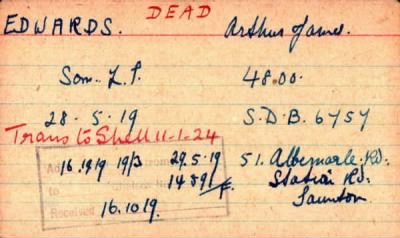 DEAD
EDWARDS. Arthur James.
Som. L.I. 48.00.
28-5-19 S.D.B. 6757
Trans to Shell 11-1-24
16.19.19 19/3 29.5.19 51. Albemarle. Rd.
to 14891/F. Station Rd.
Received Taunton
16.10.19.